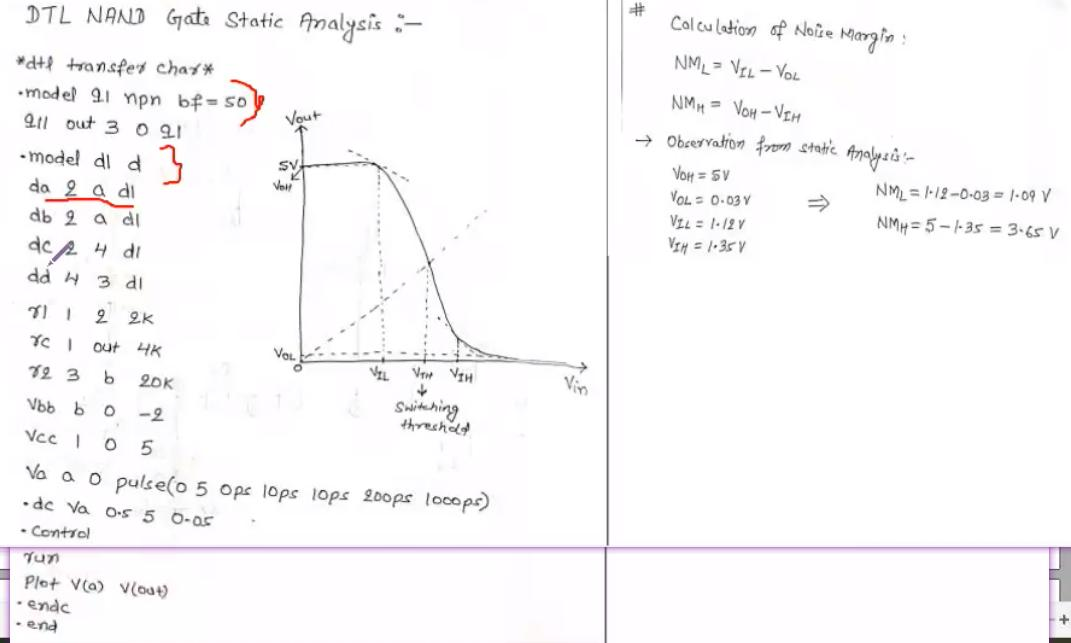 DTL NAND Gate Static Analysis :-
*dtl transfer char*
.model q1 npn bf=50
q11 out 3 0 q1
.model d1 d
da 2 a d1
db 2 a d1
dc 2 4 d1
dd 4 3 d1
r1 1 2 2K
rc 1 out 4K
r2 3 b 20K
Vbb b 0 -2
Vcc 1 0 5
Va a 0 pulse(0 5 0ps 10ps 10ps 200ps 1000ps)
.dc Va 0.5 5 0.05
.Control
run
Plot V(a) V(out)
.endc
.end
Vout
5V
VOH
VOL
0
VIL VTH VIH
Vin
Switching
threshold
#
Calculation of Noise Margin :
NML = VIL - VOL
NMH = VOH - VIH
→ Observation from static Analysis :-
VOH = 5V
VOL = 0.03V
VIL = 1.12V
VIH = 1.35V
⇒
NML = 1.12-0.03 = 1.09 V
NMH = 5-1.35 = 3.65 V